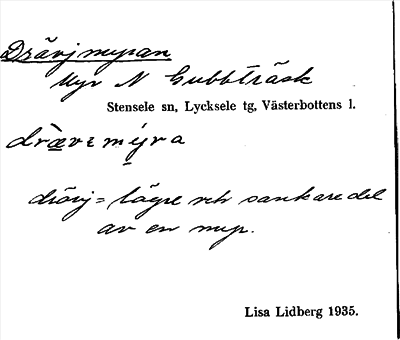 Drävjmyran
Myr N Gubbträsk
Stensele sn, Lycksele tg, Västerbottens l.
drävj = lägre och sankare del
av en myr.
Lisa Lidberg 1935.